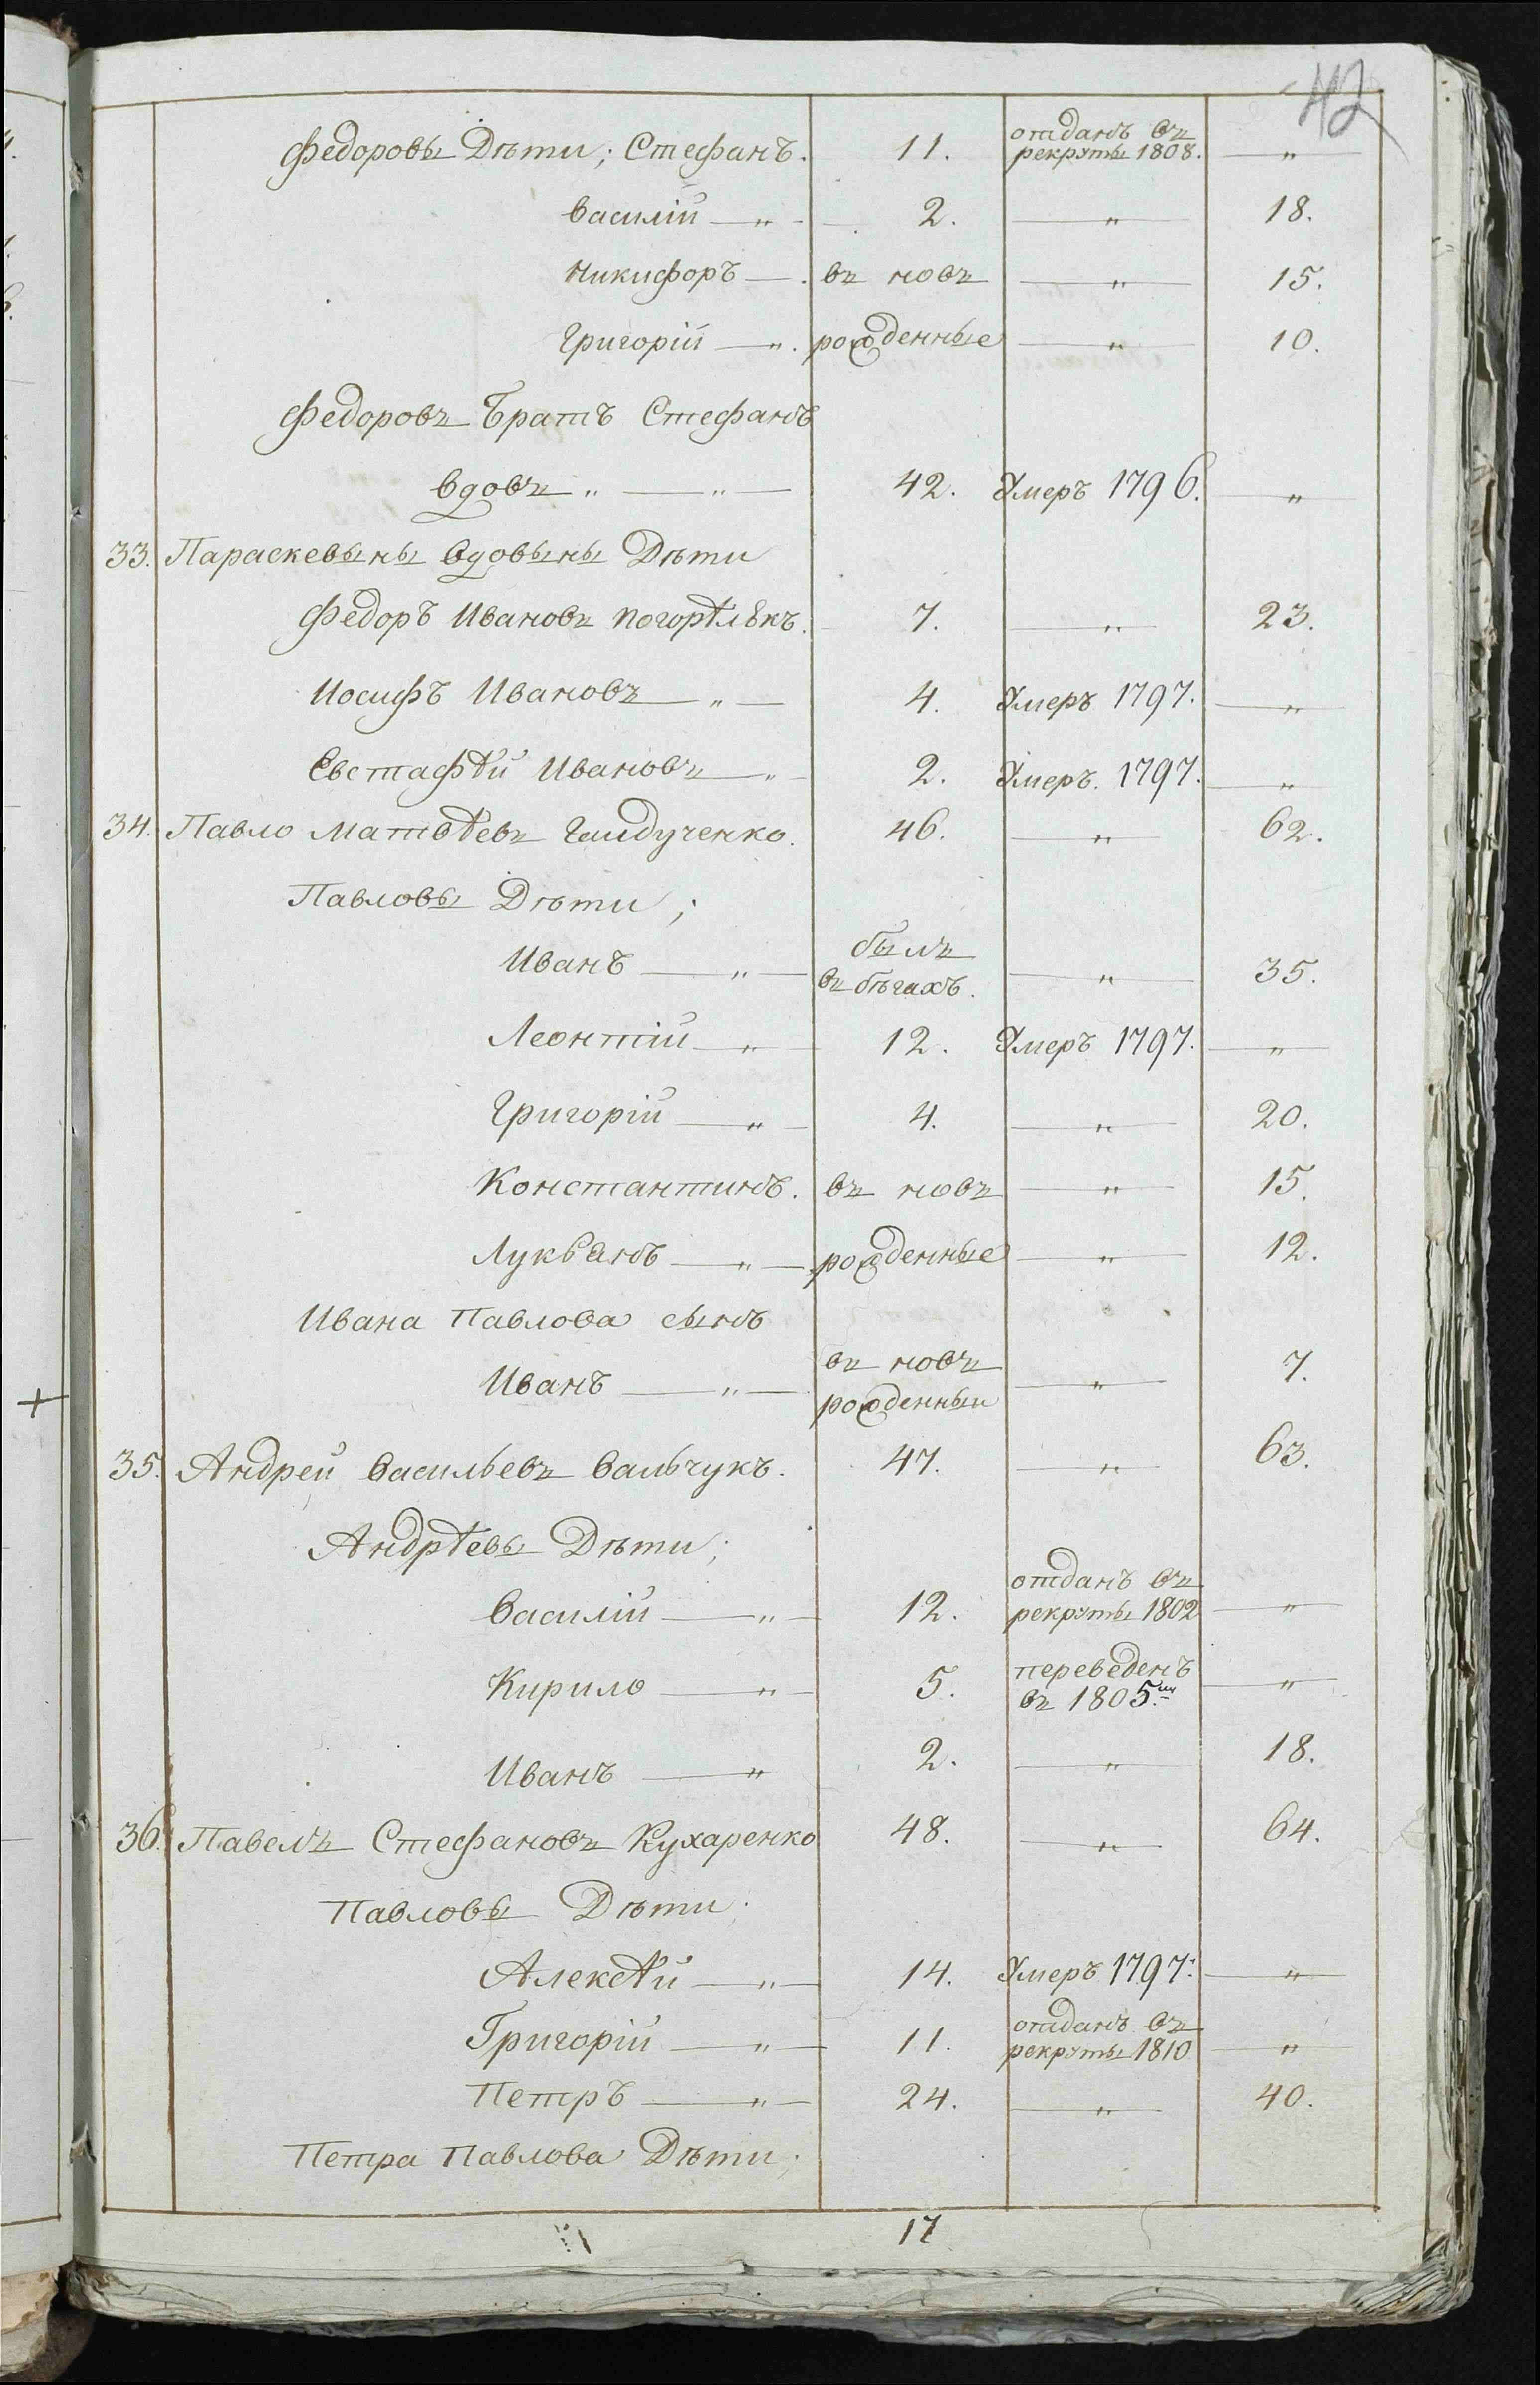 42
Федоровы Дѣти; Стефанъ. 11. отданъ въ рекруты 1808. — „
Василій — „ - 2. — „ — 18.
Никифоръ — . въ новъ — „ — 15.
Григорій — „. рожденные — „ — 10.
Федоровъ Братъ Стефанъ
вдовъ „ — „ — 42. Умеръ 1796. „
33. Параскевыны вдовыны Дѣти
Федоръ Ивановъ Погорѣлѣкъ. 7. — „ — 23.
Иосифъ Ивановъ — „ — 4. Умеръ 1797. — „
Евстафѣй Ивановъ — „ - 2. Умеръ. 1797. — „
34. Павло Матвѣевъ Гайдученко. 46. — „ — 62.
Павловы Дѣти;
Иванъ — „ — былъ въ бѣгахъ. — „ — 35.
Леонтій — „ — 12. Умеръ 1797. — „
Григорій — „ — 4. — „ — 20.
Константинъ. въ новъ — „ — 15.
Лукьянъ — „ — рожденные — „ — 12.
Ивана Павлова сынъ
Иванъ — „ — въ новъ рожденный — „ — 7.
35. Андрей Васильевъ Вальчукъ. 47. — „ — 63.
Андрѣевы Дѣти;
Василій — „ — 12. отданъ въ рекруты 1802 — „
Кирило — „ — 5. переведенъ въ 1805.мъ — „
Иванъ — „ 2. — „ — 18.
36. Павелъ Стефановъ Кухаренко 48. — „ — 64.
Павловы Дѣти.
Алексѣй — „ — 14. Умеръ 1797. — „
Григорій — „ — 11. отданъ въ рекруты 1810 — „
Петръ — „ — 24. — „ — 40.
Петра Павлова Дѣти;
17